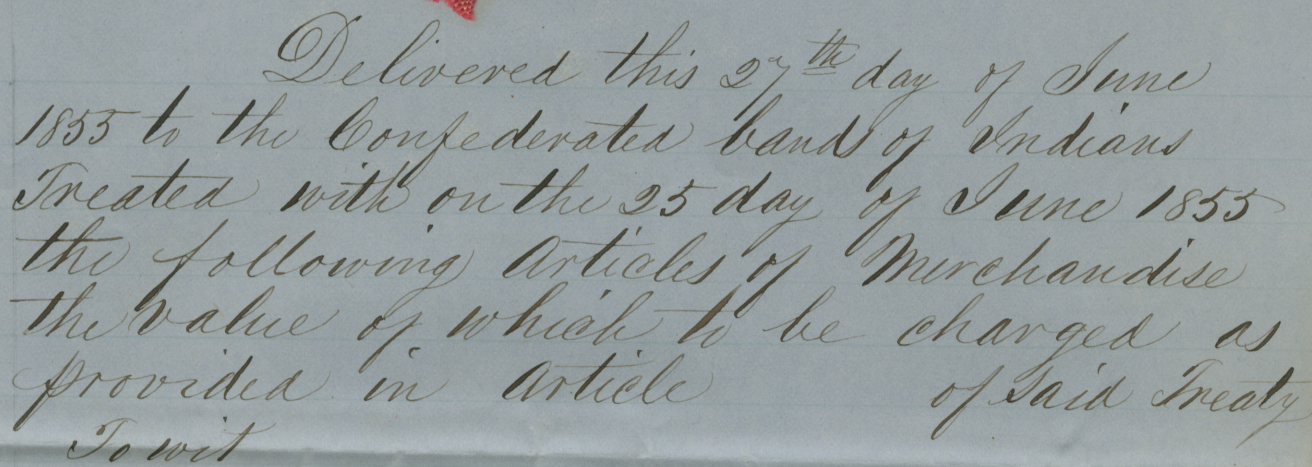 Delivered this 27th day of June
1855 to the Confederated bands of Indians
Treated with on the 25 day of June 1855
the following Articles of Merchandise
the value of which to be charged as
provided in Article of Said Treaty
To wit